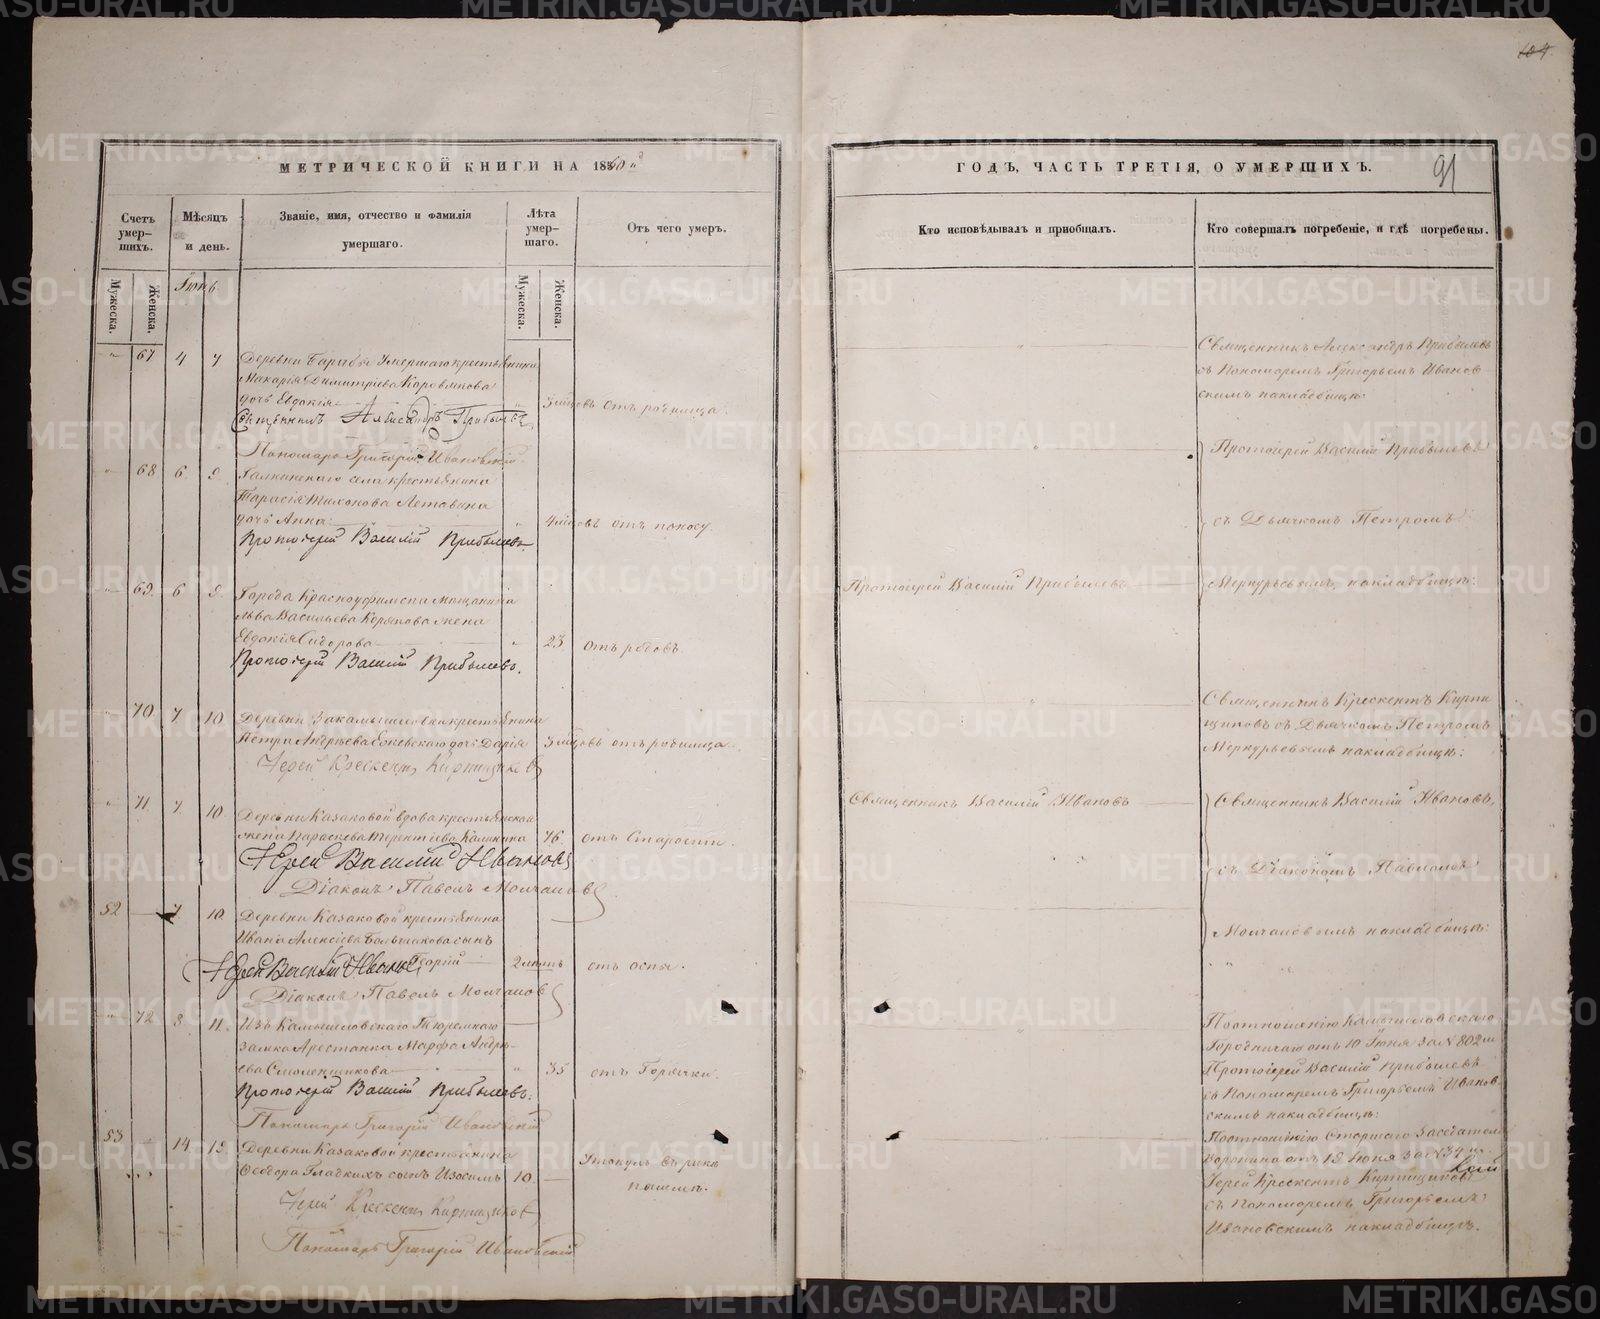 104
МЕТРИЧЕСКОЙ КНИГИ НА 1860й
ГОДЪ, ЧАСТЬ ТРЕТІЯ, О УМЕРШИХЪ.
91
Счетъ умер-шихъ.
Мѣсяцъ и день.
Званіе, имя, отчество и фамилія умершаго.
Лѣта умер-шаго.
Отъ чего умеръ.
Кто исповѣдывалъ и пріобщалъ.
Кто совершалъ погребеніе, и гдѣ погребены.
Мужеска.
Женска.
Іюнь
Мужеска.
Женска.
67 4 7
Умершаго крестьянина
Макарія Димитріева Коровякова
дочь Евдокія
3 мѣцовъ отъ родимца.
Священникъ Александръ Прибылевъ
Пономарь Григорій Ивановскій
Священникъ Александръ Прибылевъ
съ Пономаремъ Григорьемъ Иванов
скимъ накладбищѣ
68 6 9
Галкинскаго села крестьянина
Тарасія Тихонова Летавина
дочь Анна
4 мѣцовъ отъ поносу.
Протоіерей Василій Прибылевъ
Протоіерей Василій Прибылевъ
съ Дьячкомъ Петромъ
Меркурьевымъ накладбищѣ:
69. 6 9.
Города Красноуфимска мѣщанина
Льва Васильева Корякова жена
Евдокія Сидорова
23 отъ родовъ.
Протоіерей Василій Прибылевъ.
Протоіерей Василій Прибылевъ
70. 7 10
Деревни Закамышловки крестьянина
Петра Андреева дочь Дарія
3 мѣцовъ отъ родимца.
Іерей Крескентъ Кирпищиковъ
Священникъ Крескентъ Кирпи
щиковъ съ Дьячкомъ Петромъ
Меркурьевымъ накладбищѣ:
71. 7 10
Деревни Казаковой вдова крестьянская
жена Параскева Терентіева Калинина
76 отъ Старости.
Іерей Василій Ивановъ
Діаконъ Павелъ Молчановъ
Священникъ Василій Ивановъ
Священникъ Василій Ивановъ,
съ Діакономъ Павломъ
Молчановымъ накладбищѣ:
52 7 10
Деревни Казаковой крестьянина
Ивана Алексіева Большакова сынъ
Георгій
2 лѣтъ отъ оспы.
Іерей Василій Ивановъ
Діаконъ Павелъ Молчановъ
72 8 11.
Изъ Камышловскаго Тюремнаго
замка Арестанка Марфа Андре-
ева Смоленщикова
35 отъ Горячки.
Протоіерей Василій Прибылевъ.
Пономарь Григорій Ивановскій
Поотношенію Камышловскаго
Городничаго отъ 10 Іюня за № 802м
Протоіерей Василій Прибылевъ
съ Пономаремъ Григорьемъ Иванов-
скимъ накладбищѣ:
53 14 19
Деревни Казаковой крестьянина
Ѳеодора Гладкихъ сынъ Изосимъ
10
Утонулъ въ рѣкѣ
Іерей Крескентъ Кирпищиковъ
Пономарь Григорій Ивановскій
Поотношенію Старшаго Заседателя
Воронина отъ 18 Іюня за № 34
Іерей Крескентъ Кирпищиковъ
съ Пономаремъ Григорьемъ
Ивановскимъ накладбищѣ.
METRIKI.GASO-URAL.RU